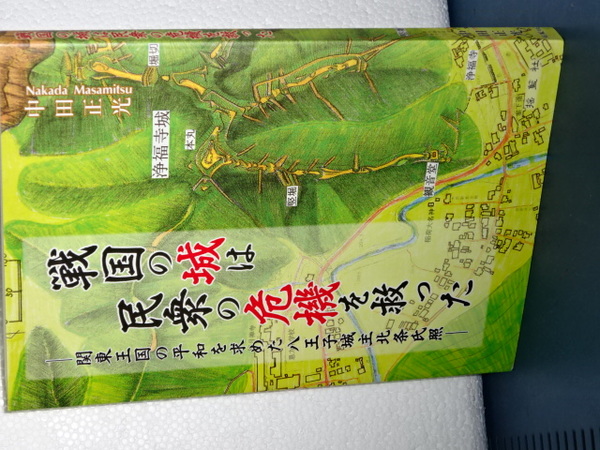 戦国の城は
民衆の危機を救った
―関東王国の平和を求めた八王子城主北条氏照―
Nakada Masamitsu
中田正光
堀切
浄福寺城
本丸
竪堀
観音堂
浄福寺
揺籃社